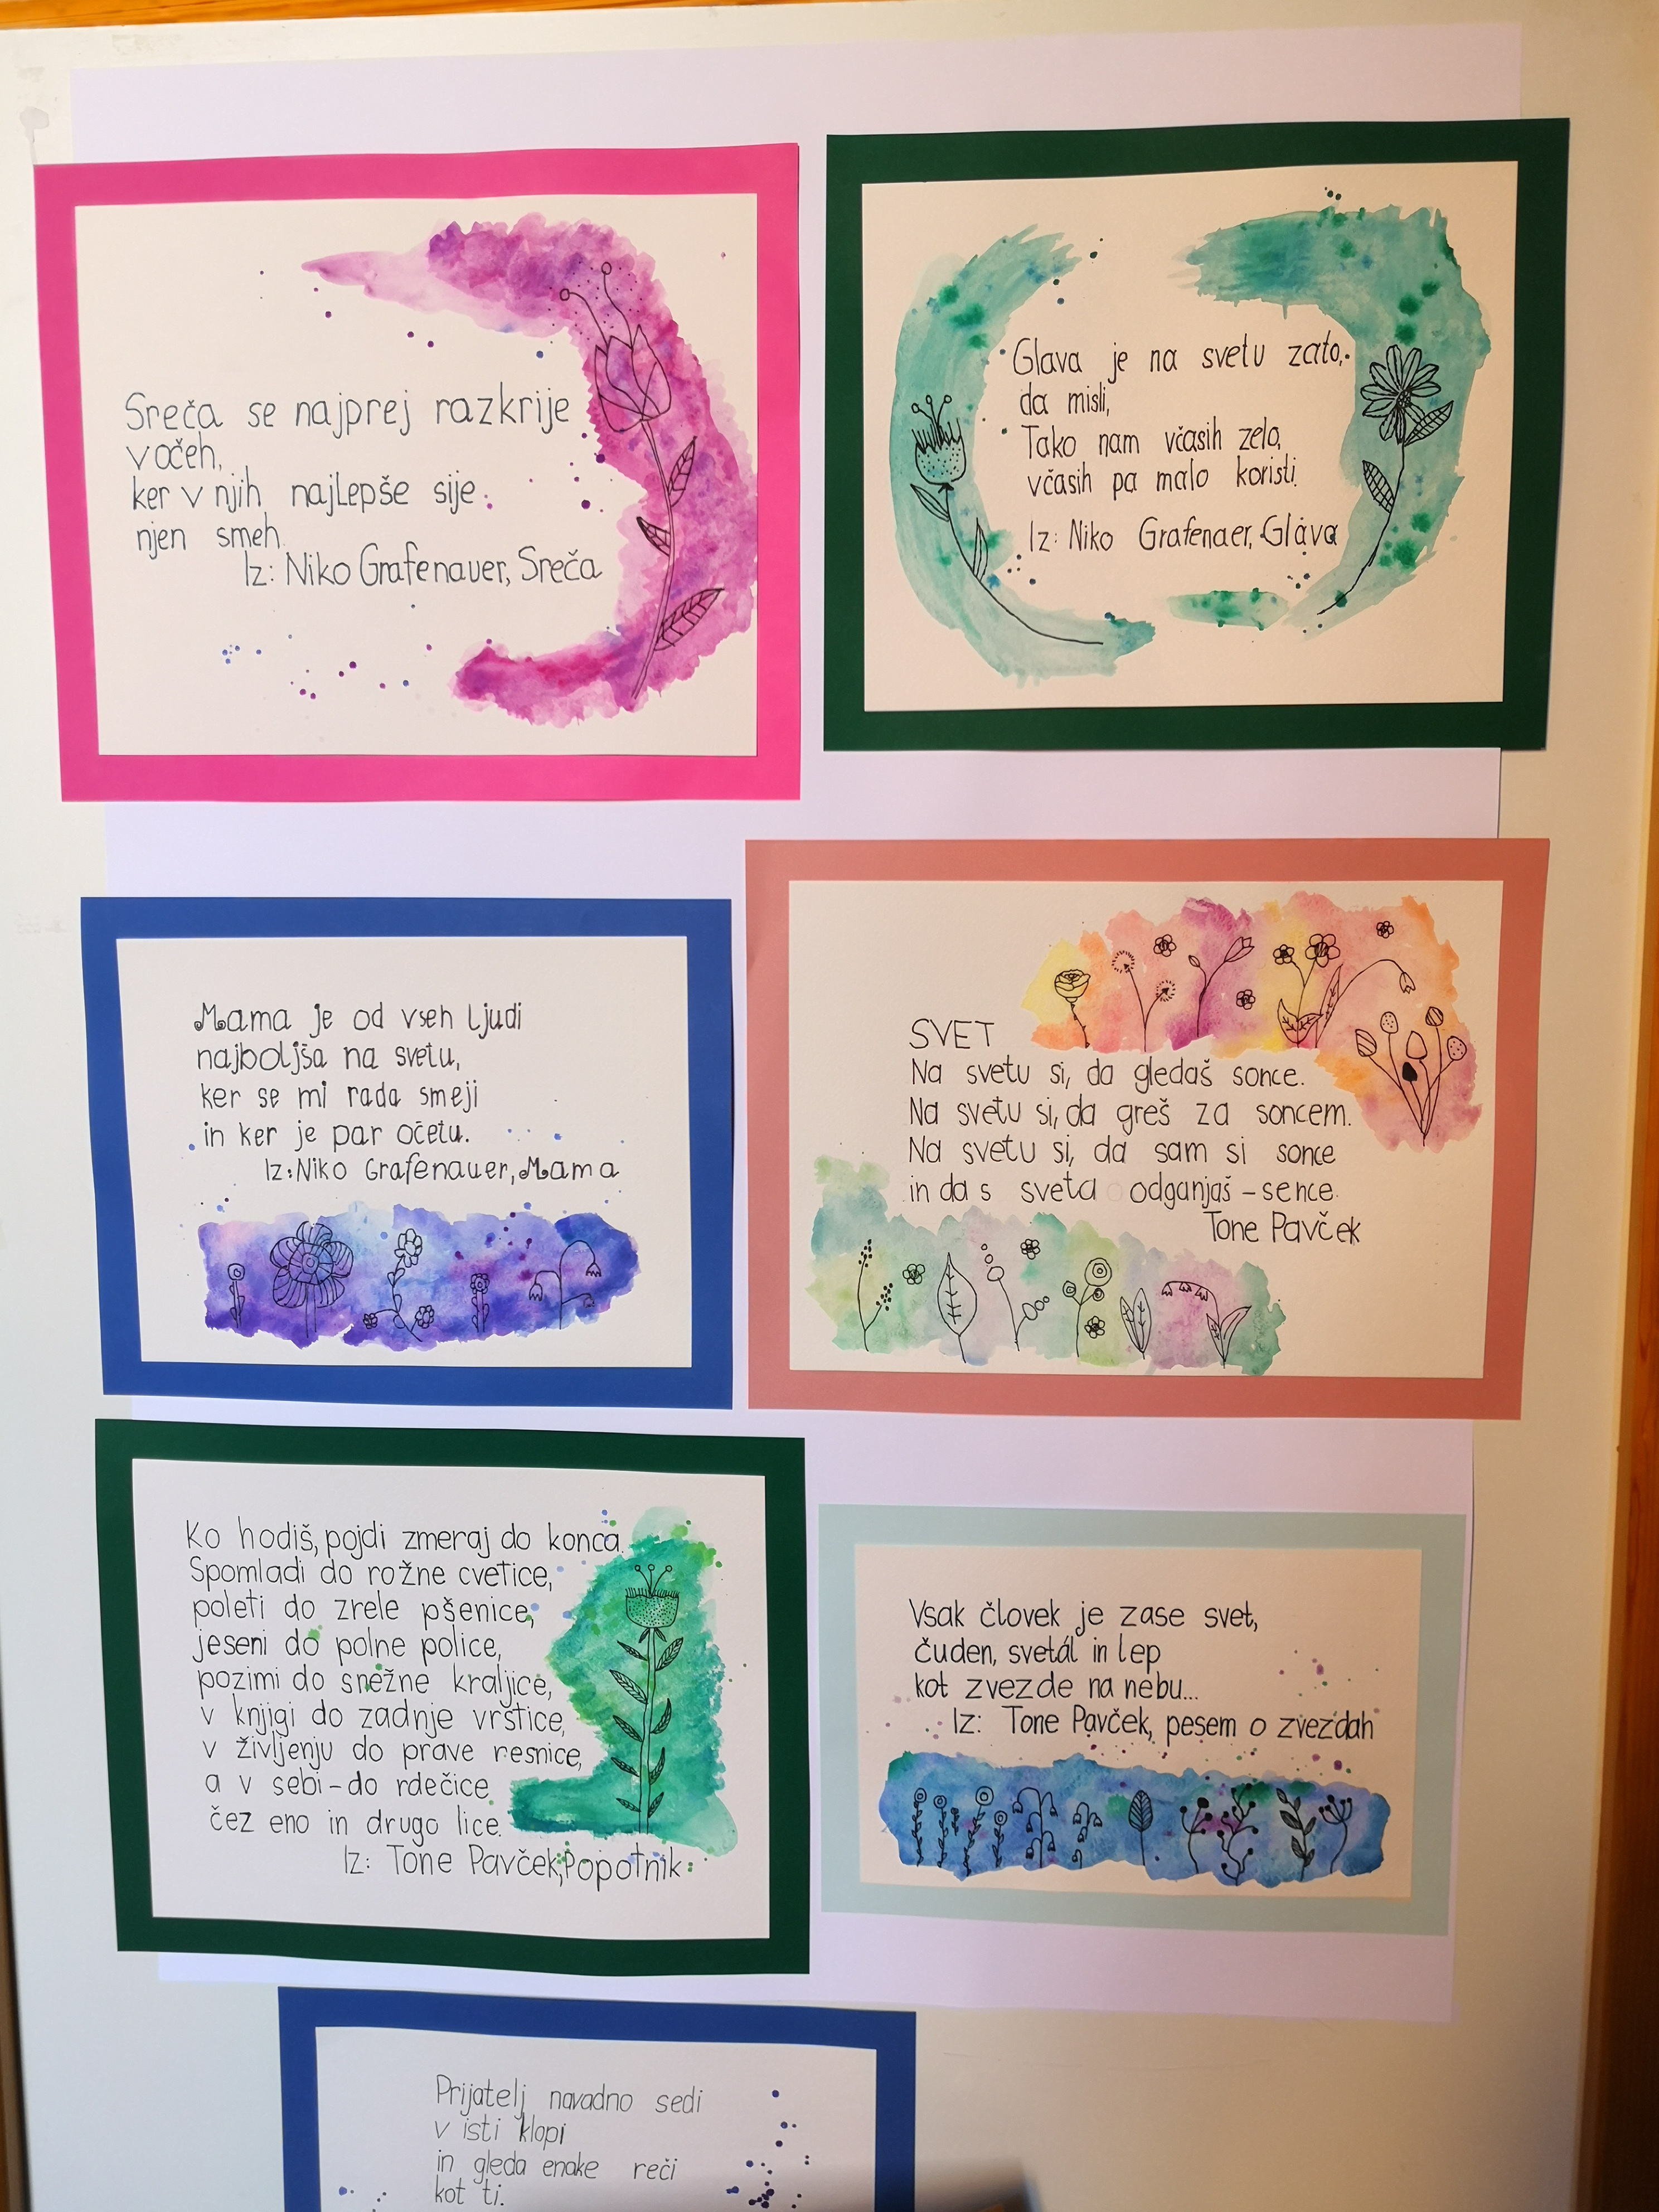 Sreča se najprej razkrije
v očeh,
ker v njih najLepše sije
njen smeh.
Iz: Niko Grafenauer, Sreča
Glava je na svetu zato,
da misli,
Tako nam včasih zelo,
včasih pa malo koristi.
Iz: Niko Grafenaer, Glava
Mama je od vseh ljudi
najboljša na svetu,
ker se mi rada smeji
in ker je par očetu.
Iz: Niko Grafenauer, Mama
SVET
Na svetu si, da gledaš sonce.
Na svetu si, da greš za soncem.
Na svetu si, da sam si sonce
in da s sveta odganjaš - sence.
Tone Pavček
Ko hodiš, pojdi zmeraj do konca.
Spomladi do rožne cvetice,
poleti do zrele pšenice,
jeseni do polne police,
pozimi do snežne kraljice,
v knjigi do zadnje vrstice,
v življenju do prave resnice,
a v sebi - do rdečice
čez eno in drugo lice.
Iz: Tone Pavček, Popotnik
Vsak človek je zase svet,
čuden, svetál in lep
kot zvezde na nebu...
Iz: Tone Pavček, pesem o zvezdah
Prijatelj navadno sedi
v isti klopi
in gleda enake reči
kot ti.